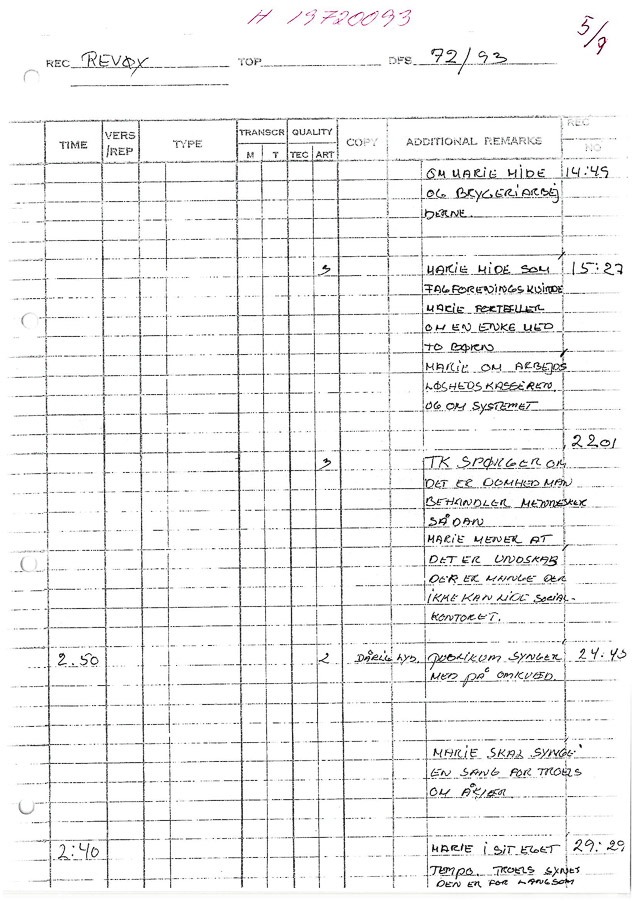 H 19720093
5/9
REC REVOX TOP DFS 72/93
TIME VERS /REP TYPE TRANSCR QUALITY COPY ADDITIONAL REMARKS REC NO
M T TEC ART
OM MARIE HIDE 14:49
OG BRYGERIARBEJ
DERNE.
3 MARIE HIDE SOM 15:27
FAGFORENINGSKVINDE
MARIE FORTÆLLER
OM EN ENKE MED
TO BØRN
MARIE OM ARBEJDS
LØSHEDSKASSEREN.
OG OM SYSTEMET
2201
3 TK SPØRGER OM
DET ER DOMHED MAN
BEHANDLER MENNESKER
SÅDAN
MARIE MENER AT
DET ER ONDSKAB
DER ER MANGE DER
IKKE KAN LIDE SOCIAL-
KONTORET.
2.50 2 DÅRLIG LYD. PUBLIKUM SYNGER 24:45
MED PÅ OMKVÆD
MARIE SKAL SYNGE
EN SANG FOR TROELS
OM
2:40 MARIE I SIT EGET 29:29
TEMPO. TROELS SYNES
DEN ER FOR LANGSOM